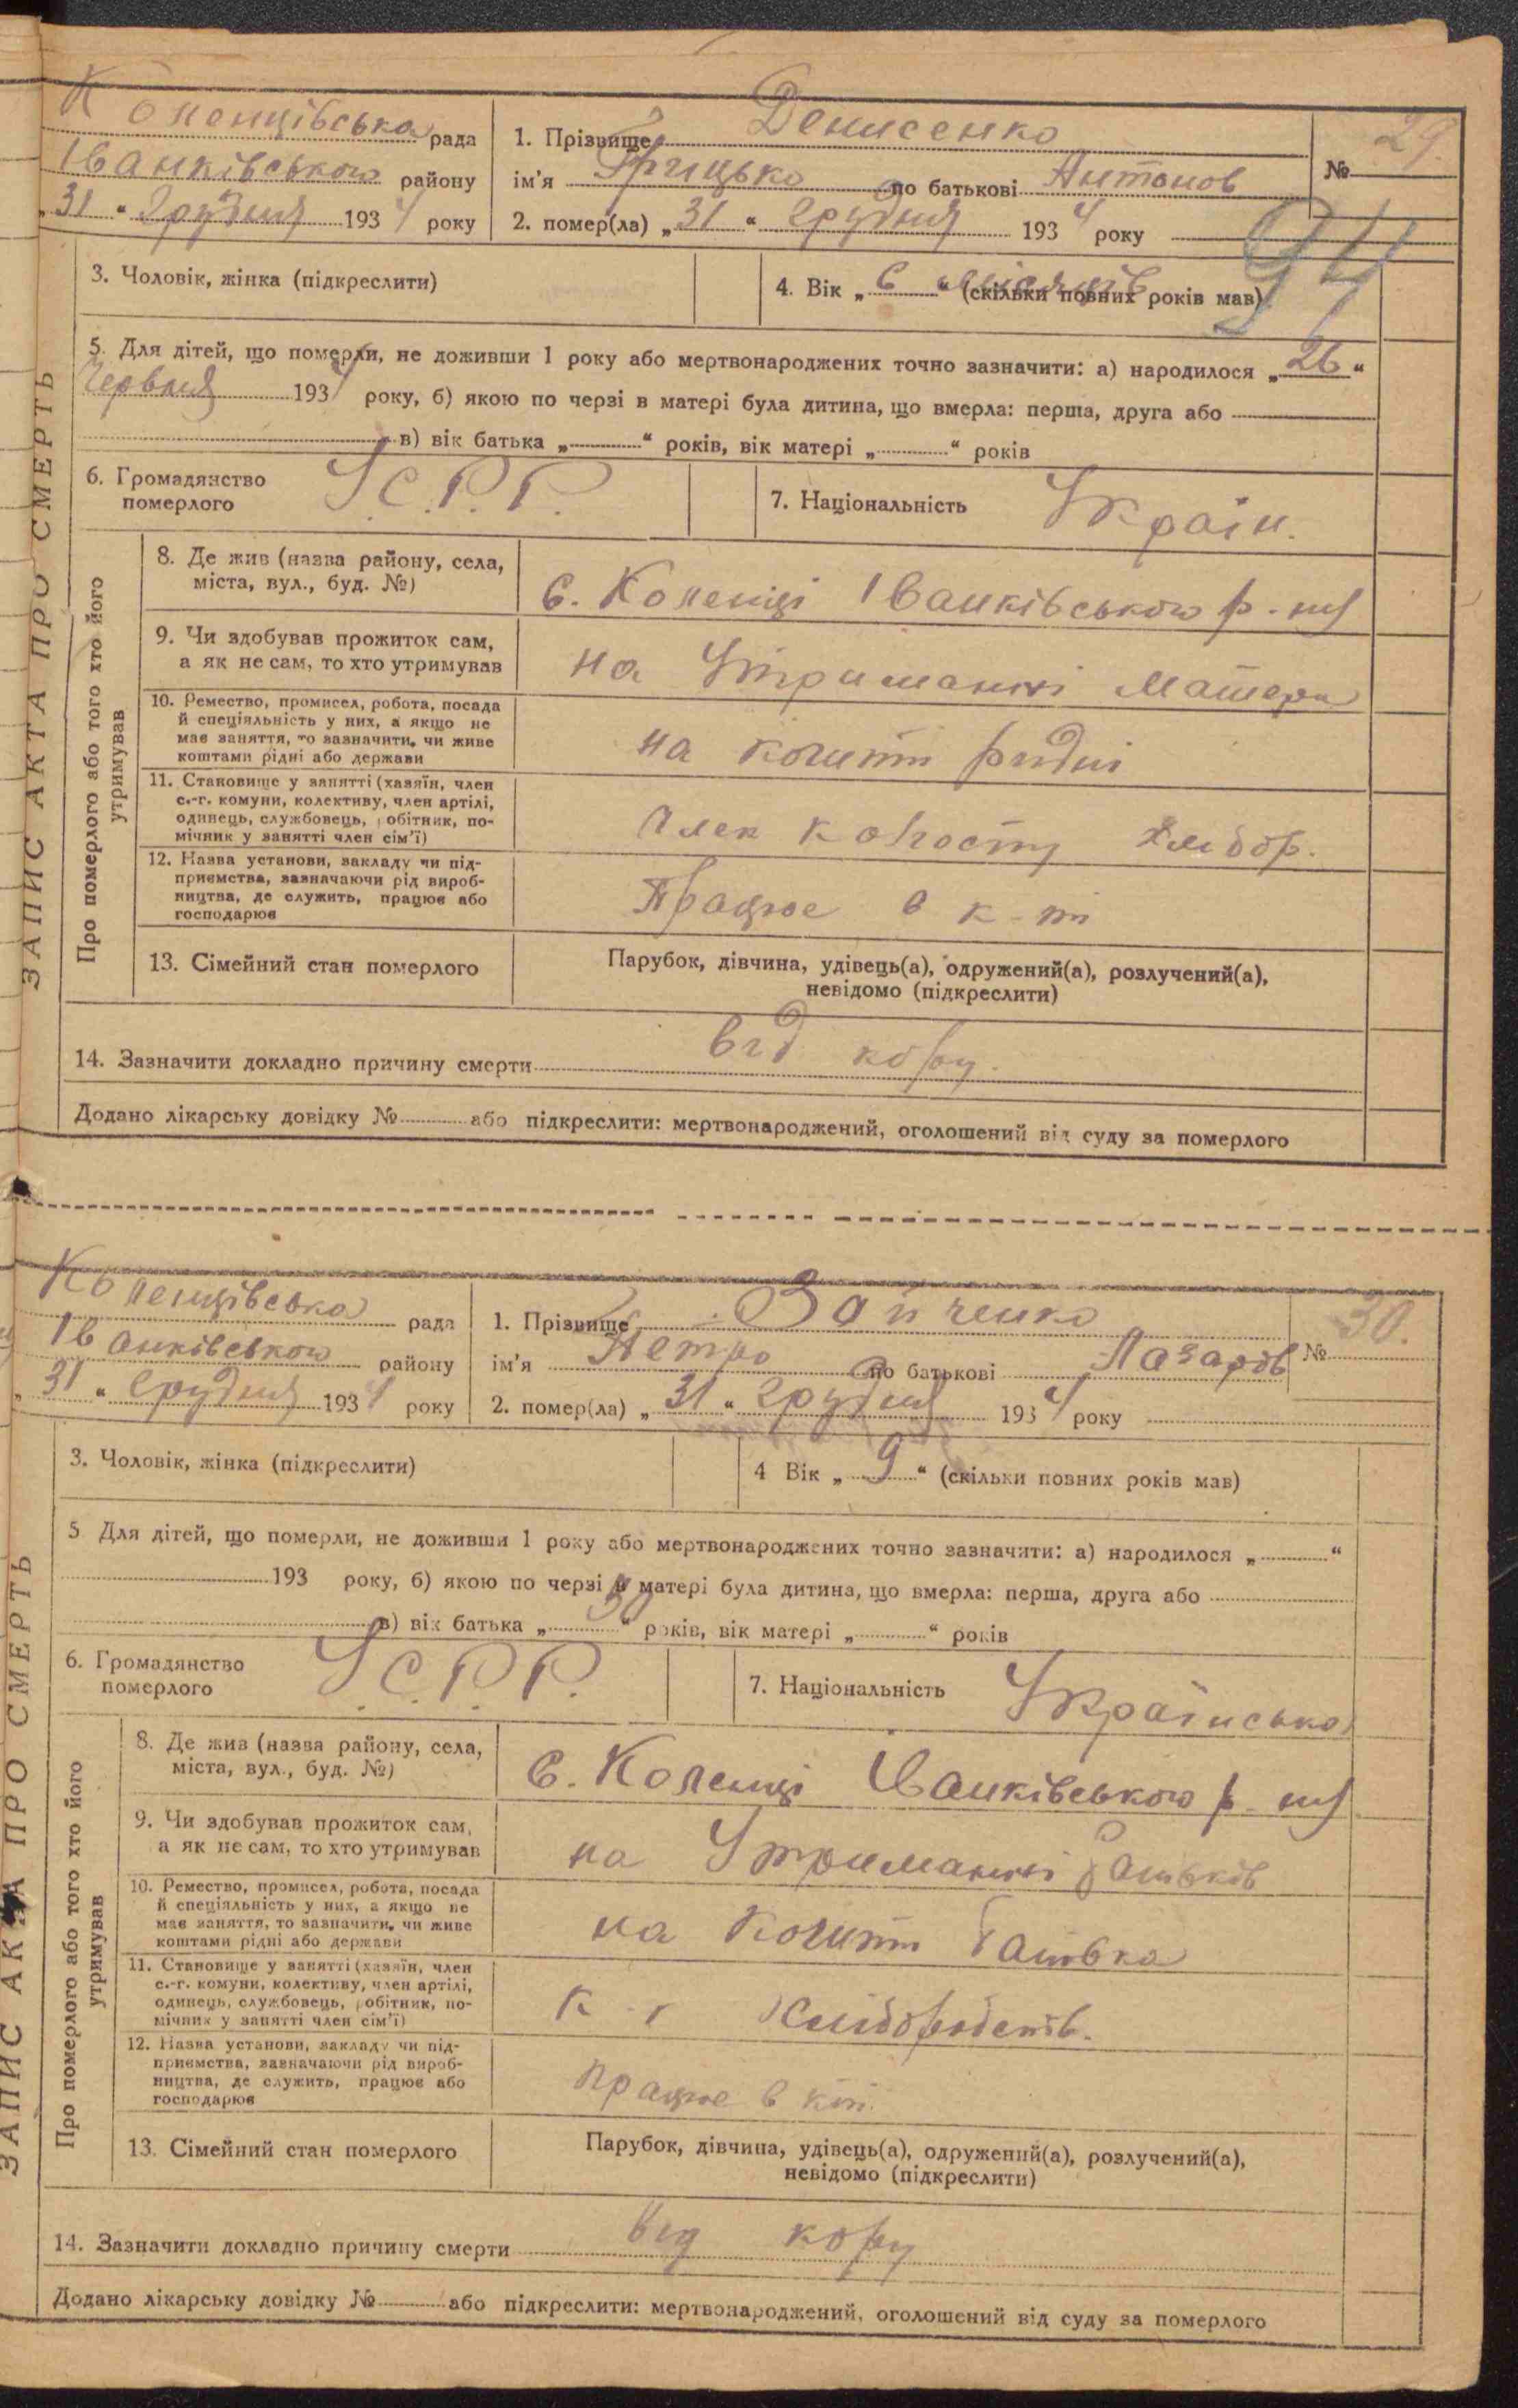 ЗАПИС АКТА ПРО СМЕРТЬ
Коленцівська рада
Іванківського району
„31“ Грудня 1934 року
1. Прізвище Денисенко
ім'я Грицько по батькові Антонов
№ 29.
2. помер(ла) „31“ Грудня 1934 року
3. Чоловік, жінка (підкреслити)
4. Вік „6“ місяців (скільки повних років мав)
5. Для дітей, що померли, не доживши 1 року або мертвонароджених точно зазначити: а) народилося „26“
Червня 1934 року, б) якою по черзі в матері була дитина, що вмерла: перша, друга або
в) вік батька „ “ років, вік матері „ “ років
6. Громадянство
померлого
У.С.Р.Р.
7. Національність Україн.
Про померлого або того хто його
утримував
8. Де жив (назва району, села,
міста, вул., буд. №)
с. Коленці Іванківського р-ну
9. Чи здобував прожиток сам,
а як не сам, то хто утримував
на Утриманні Матери
10. Ремество, промисел, робота, посада
й спеціяльність у них, а якщо не
має заняття, то зазначити, чи живе
коштами рідні або держави
на кошти ридні
11. Становище у занятті (хазяїн, член
с.-г. комуни, колективу, член артілі,
одинець, службовець, робітник, по-
мічник у занятті член сім'ї)
Член колгоспу Хлібор.
12. Назва установи, закладу чи під-
приємства, зазначаючи рід вироб-
ництва, де служить, працює або
господарює
Працює в к-пі
13. Сімейний стан померлого
Парубок, дівчина, удівець(а), одружений(а), розлучений(а),
невідомо (підкреслити)
14. Зазначити докладно причину смерти від кору.
Додано лікарську довідку № або підкреслити: мертвонароджений, оголошений від суду за померлого
ЗАПИС АКТА ПРО СМЕРТЬ
Коленцівська рада
Іванківського району
„31“ Грудня 1934 року
1. Прізвище Зайченко
ім'я Петро по батькові Лазаров
№ 30.
2. помер(ла) „31“ Грудня 1934 року
3. Чоловік, жінка (підкреслити)
4 Вік „9“ (скільки повних років мав)
5 Для дітей, що померли, не доживши 1 року або мертвонароджених точно зазначити: а) народилося „ “
193 року, б) якою по черзі в матері була дитина, що вмерла: перша, друга або
в) вік батька „30“ років, вік матері „ “ років
6. Громадянство
померлого
У.С.Р.Р.
7. Національність Українська
Про померлого або того хто його
утримував
8. Де жив (назва району, села,
міста, вул., буд. №)
с. Коленці Іванківського р-ну
9. Чи здобував прожиток сам,
а як не сам, то хто утримував
на Утриманні батьків
10. Ремество, промисел, робота, посада
й спеціяльність у них, а якщо не
має заняття, то зазначити, чи живе
коштами рідні або держави
на кошти батька
11. Становище у занятті (хазяїн, член
с.-г. комуни, колективу, член артілі,
одинець, службовець, робітник, по-
мічник у занятті член сім'ї)
12. Назва установи, закладу чи під-
приємства, зазначаючи рід вироб-
ництва, де служить, працює або
господарює
працює в
13. Сімейний стан померлого
Парубок, дівчина, удівець(а), одружений(а), розлучений(а),
невідомо (підкреслити)
14. Зазначити докладно причину смерти від кору
Додано лікарську довідку № або підкреслити: мертвонароджений, оголошений від суду за померлого